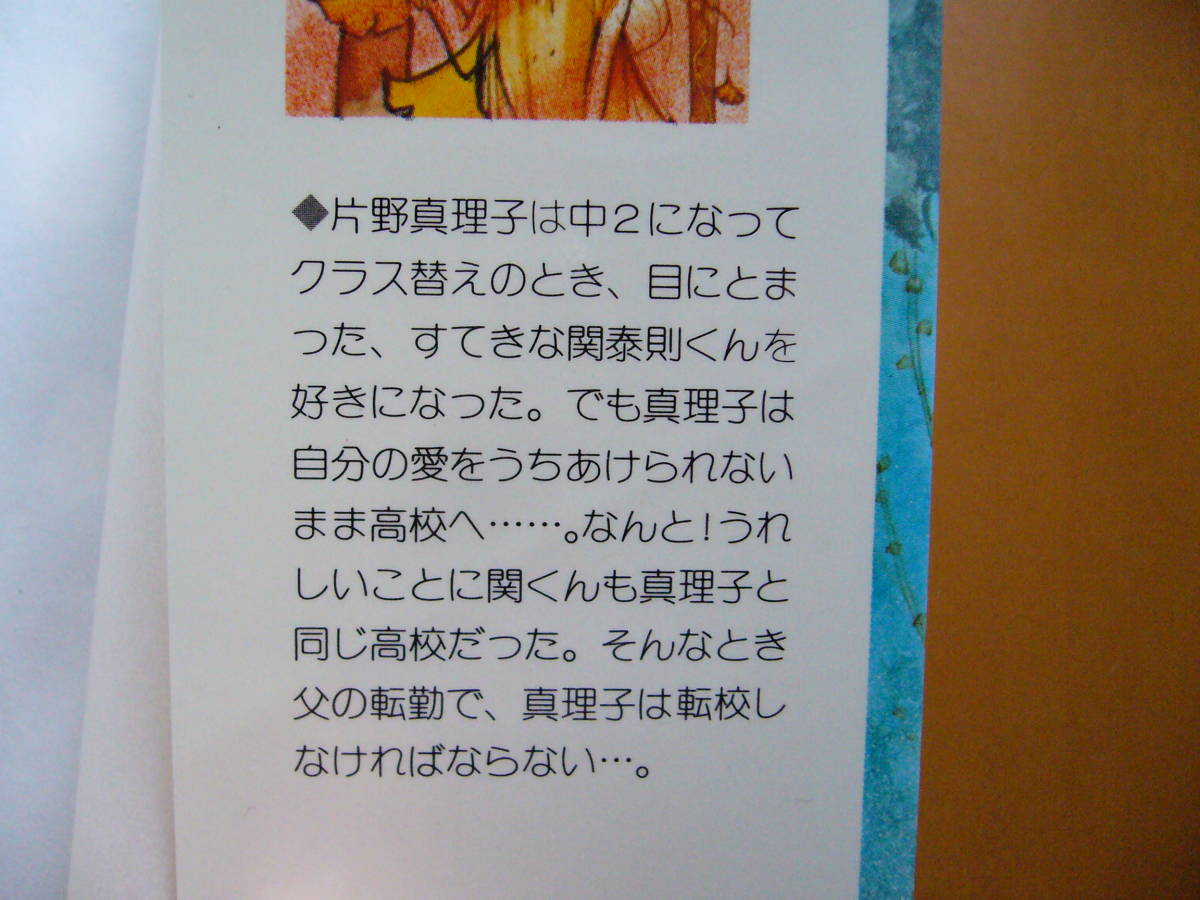 ◆片野真理子は中２になって
クラス替えのとき、目にとま
った、すてきな関泰則くんを
好きになった。でも真理子は
自分の愛をうちあけられない
まま高校へ……。なんと！うれ
しいことに関くんも真理子と
同じ高校だった。そんなとき
父の転勤で、真理子は転校し
なければならない…。